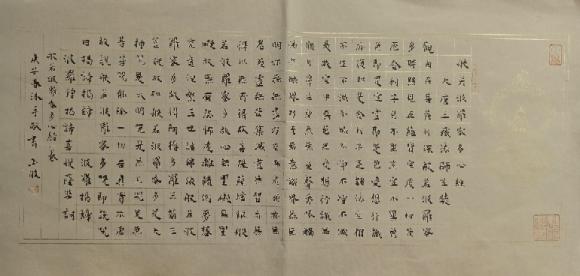 般若波羅蜜多心經
大唐三藏法師玄奘
觀自在菩薩行深般若波羅蜜
多時照見五蘊皆空度一切苦
厄舍利子色不異空空不異色
色即是空空即是色受想行識
亦復如是舍利子是諸法空相
不生不滅不垢不淨不增不減
是故空中無色無受想行識無
眼耳鼻舌身意無色聲香味觸
法無眼界乃至無意識界無無
明亦無無明盡乃至無老死亦無
老死盡無苦集滅道無智亦無
得以無所得故菩提薩埵依般
若波羅蜜多故心無罣礙無罣
礙故無有恐怖遠離顛倒夢想
究竟涅槃三世諸佛依般若波
羅蜜多故得阿耨多羅三藐三
菩提故知般若波羅蜜多是大
神咒是大明咒是無上咒是無
等等咒能除一切苦真實不虛
故說般若波羅蜜多咒即說咒
曰揭諦揭諦 波羅揭諦
波羅僧揭諦菩提薩婆訶
般若波羅蜜多心經